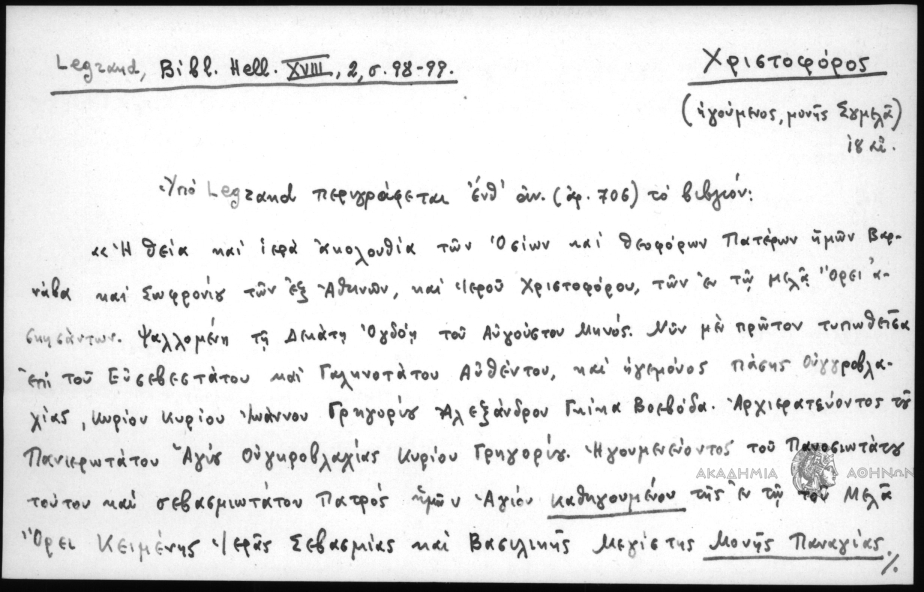 Legrand, Bibl. Hell. XVIII, 2, σ. 98-99.
Χριστοφόρος
(ἡγούμενος, μονῆς Σουμελᾶ)
18 αἰ.
Ὑπὸ Legrand περιγράφεται ἔνθ' ἀν. (ἀρ. 706) τὸ βιβλίον:
«Ἡ θεία καὶ ἱερὰ ἀκολουθία τῶν Ὁσίων καὶ θεοφόρων Πατέρων ἡμῶν Βαρ-
νάβα καὶ Σωφρονίου τῶν ἐξ Ἀθηνῶν, καὶ Ἱεροῦ Χριστοφόρου, τῶν ἐν τῷ Μελᾶ Ὄρει ἀ-
σκησάντων. Ψαλλομένη τῇ Δεκάτῃ Ὀγδόῃ τοῦ Αὐγούστου Μηνός. Νῦν μὲν πρῶτον τυπωθεῖσα
ἐπὶ τοῦ Εὐσεβεστάτου καὶ Γαληνοτάτου Αὐθέντου, καὶ ἡγεμόνος πάσης Οὐγγροβλα-
χίας, κυρίου κυρίου Ἰωάννου Γρηγορίου Ἀλεξάνδρου Γκίκα Βοεβόδα. Ἀρχιερατεύοντος τοῦ
Πανιερωτάτου Ἁγίου Οὑγκροβλαχίας Κυρίου Γρηγορίου. Ἡγουμενεύοντος τοῦ Πανοσιωτάτου
τούτου καὶ σεβασμιωτάτου Πατρὸς ἡμῶν Ἁγίου καθηγουμένου τῆς ἐν τῷ τοῦ Μελᾶ
Ὄρει Κειμένης Ἱερᾶς Σεβασμίας καὶ Βασιλικῆς Μεγίστης Μονῆς Παναγίας ./.
ΑΚΑΔΗΜΙΑ ΑΘΗΝΩΝ